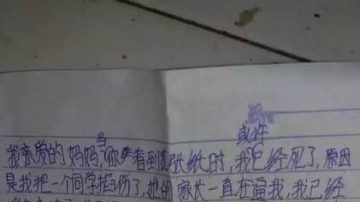 当 或许
我亲爱的妈妈,你看到这张纸时,我已经死了,原因
是我把一个同学掐伤了,她的家长一直在逼我,我已经